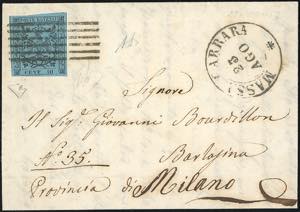 CENT. 40
MASSA CARRARA
AGO
Signore
Il Sig.r Giovanni Bourdillon
N.o 35.
Barlasina
Provincia di Milano